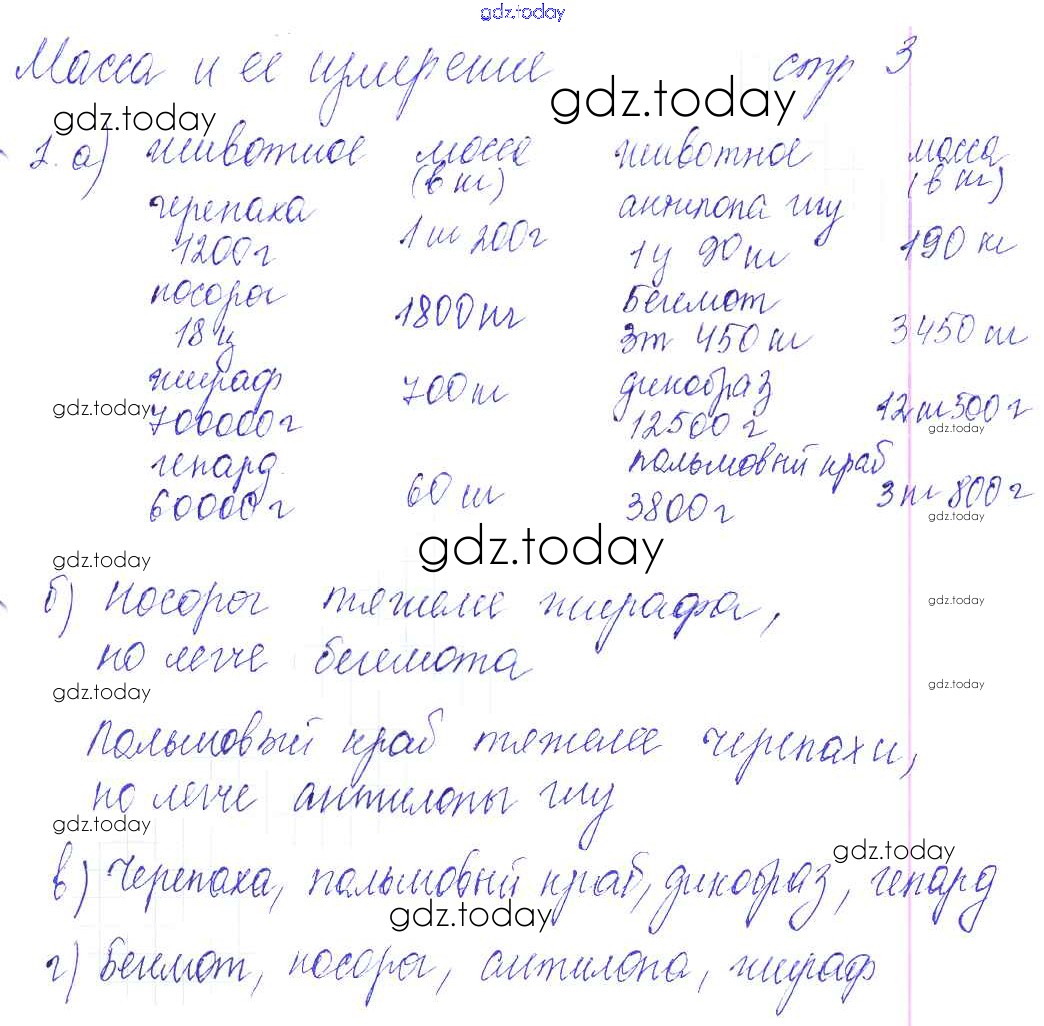 gdz.today
Масса и её измерение стр 3
gdz.today
gdz.today
1. а) животное масса животное масса
(в кг) (в кг)
черепаха антилопа гну
1200г 1 кг 200г 1ц 90 кг 190 кг
носорог бегемот
18 ц 1800 кг 3т 450 кг 3450 кг
жираф 700 кг дикобраз
gdz.today
700000г 12500 г 12 кг 500 г
gdz.today
гепард пальмовый краб
60000г 60 кг 3800г 3 кг 800 г
gdz.today
gdz.today
gdz.today
б) Носорог тяжелее жирафа,
gdz.today
но легче бегемота
gdz.today
gdz.today
Пальмовый краб тяжелее черепахи,
но легче антилопы гну
gdz.today
gdz.today
в) Черепаха, пальмовый краб, дикобраз, гепард
gdz.today
г) Бегемот, носорог, антилопа, жираф